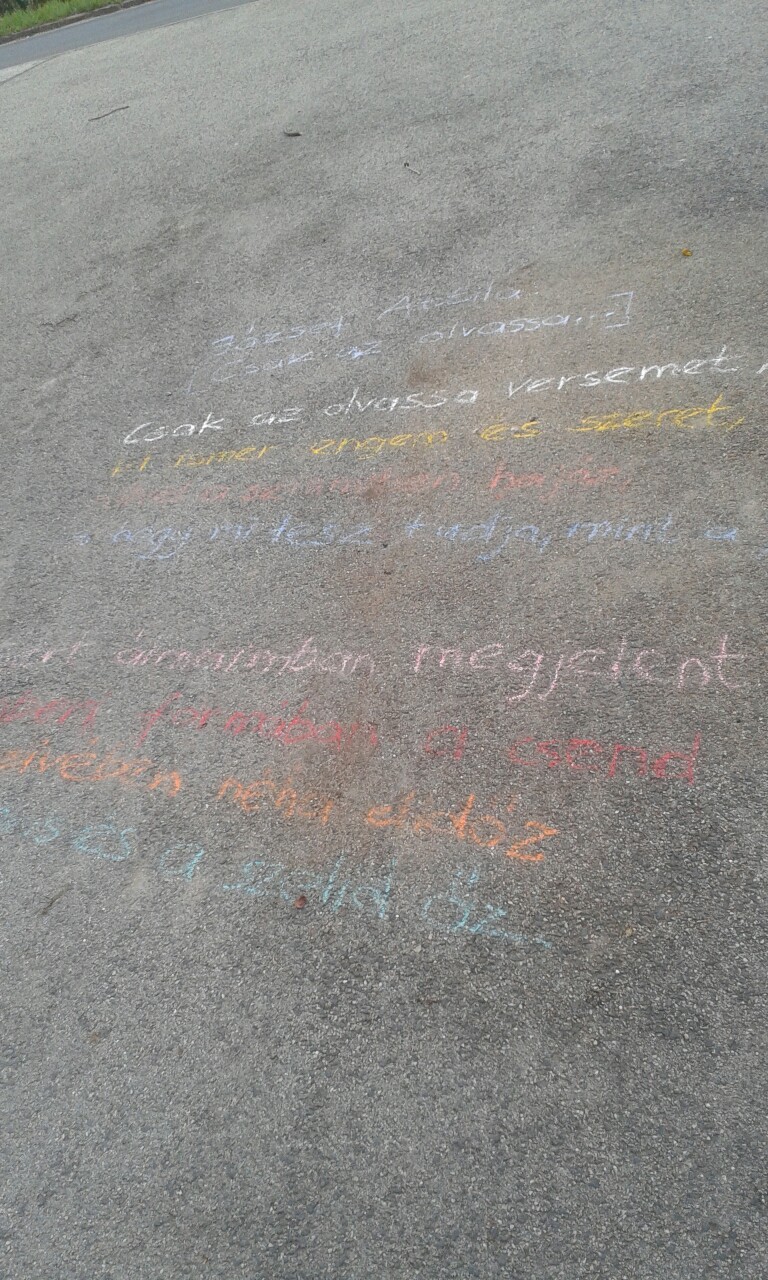 József Attila
[Csak az olvassa...]
Csak az olvassa versemet
ki ismer engem és szeret,
hajón
s hogy mi lesz tudja, mint a
mert álmaiban megjelent
emberi formában a csend
szivében néha elidőz
a és a szelid őz